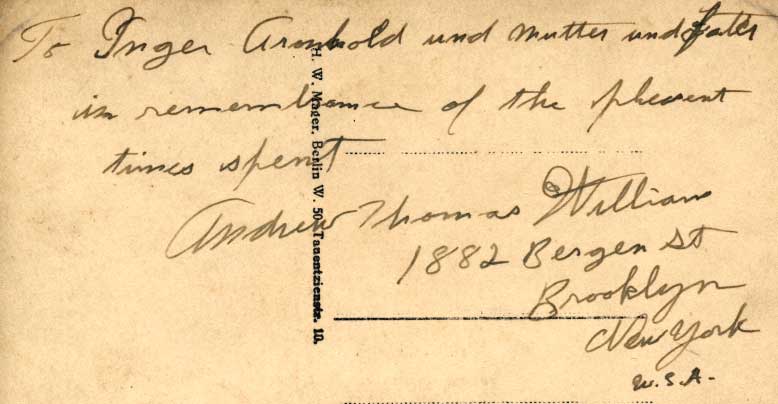 To Inger Aronhold und Mutter und Fater
in remembrance of the pleasent
times spent
Andrew Thomas William
1882 Bergen St
Brooklyn
New York
U.S.A.
H. W. Mager, Berlin W. 50, Tauentzienstr. 10.